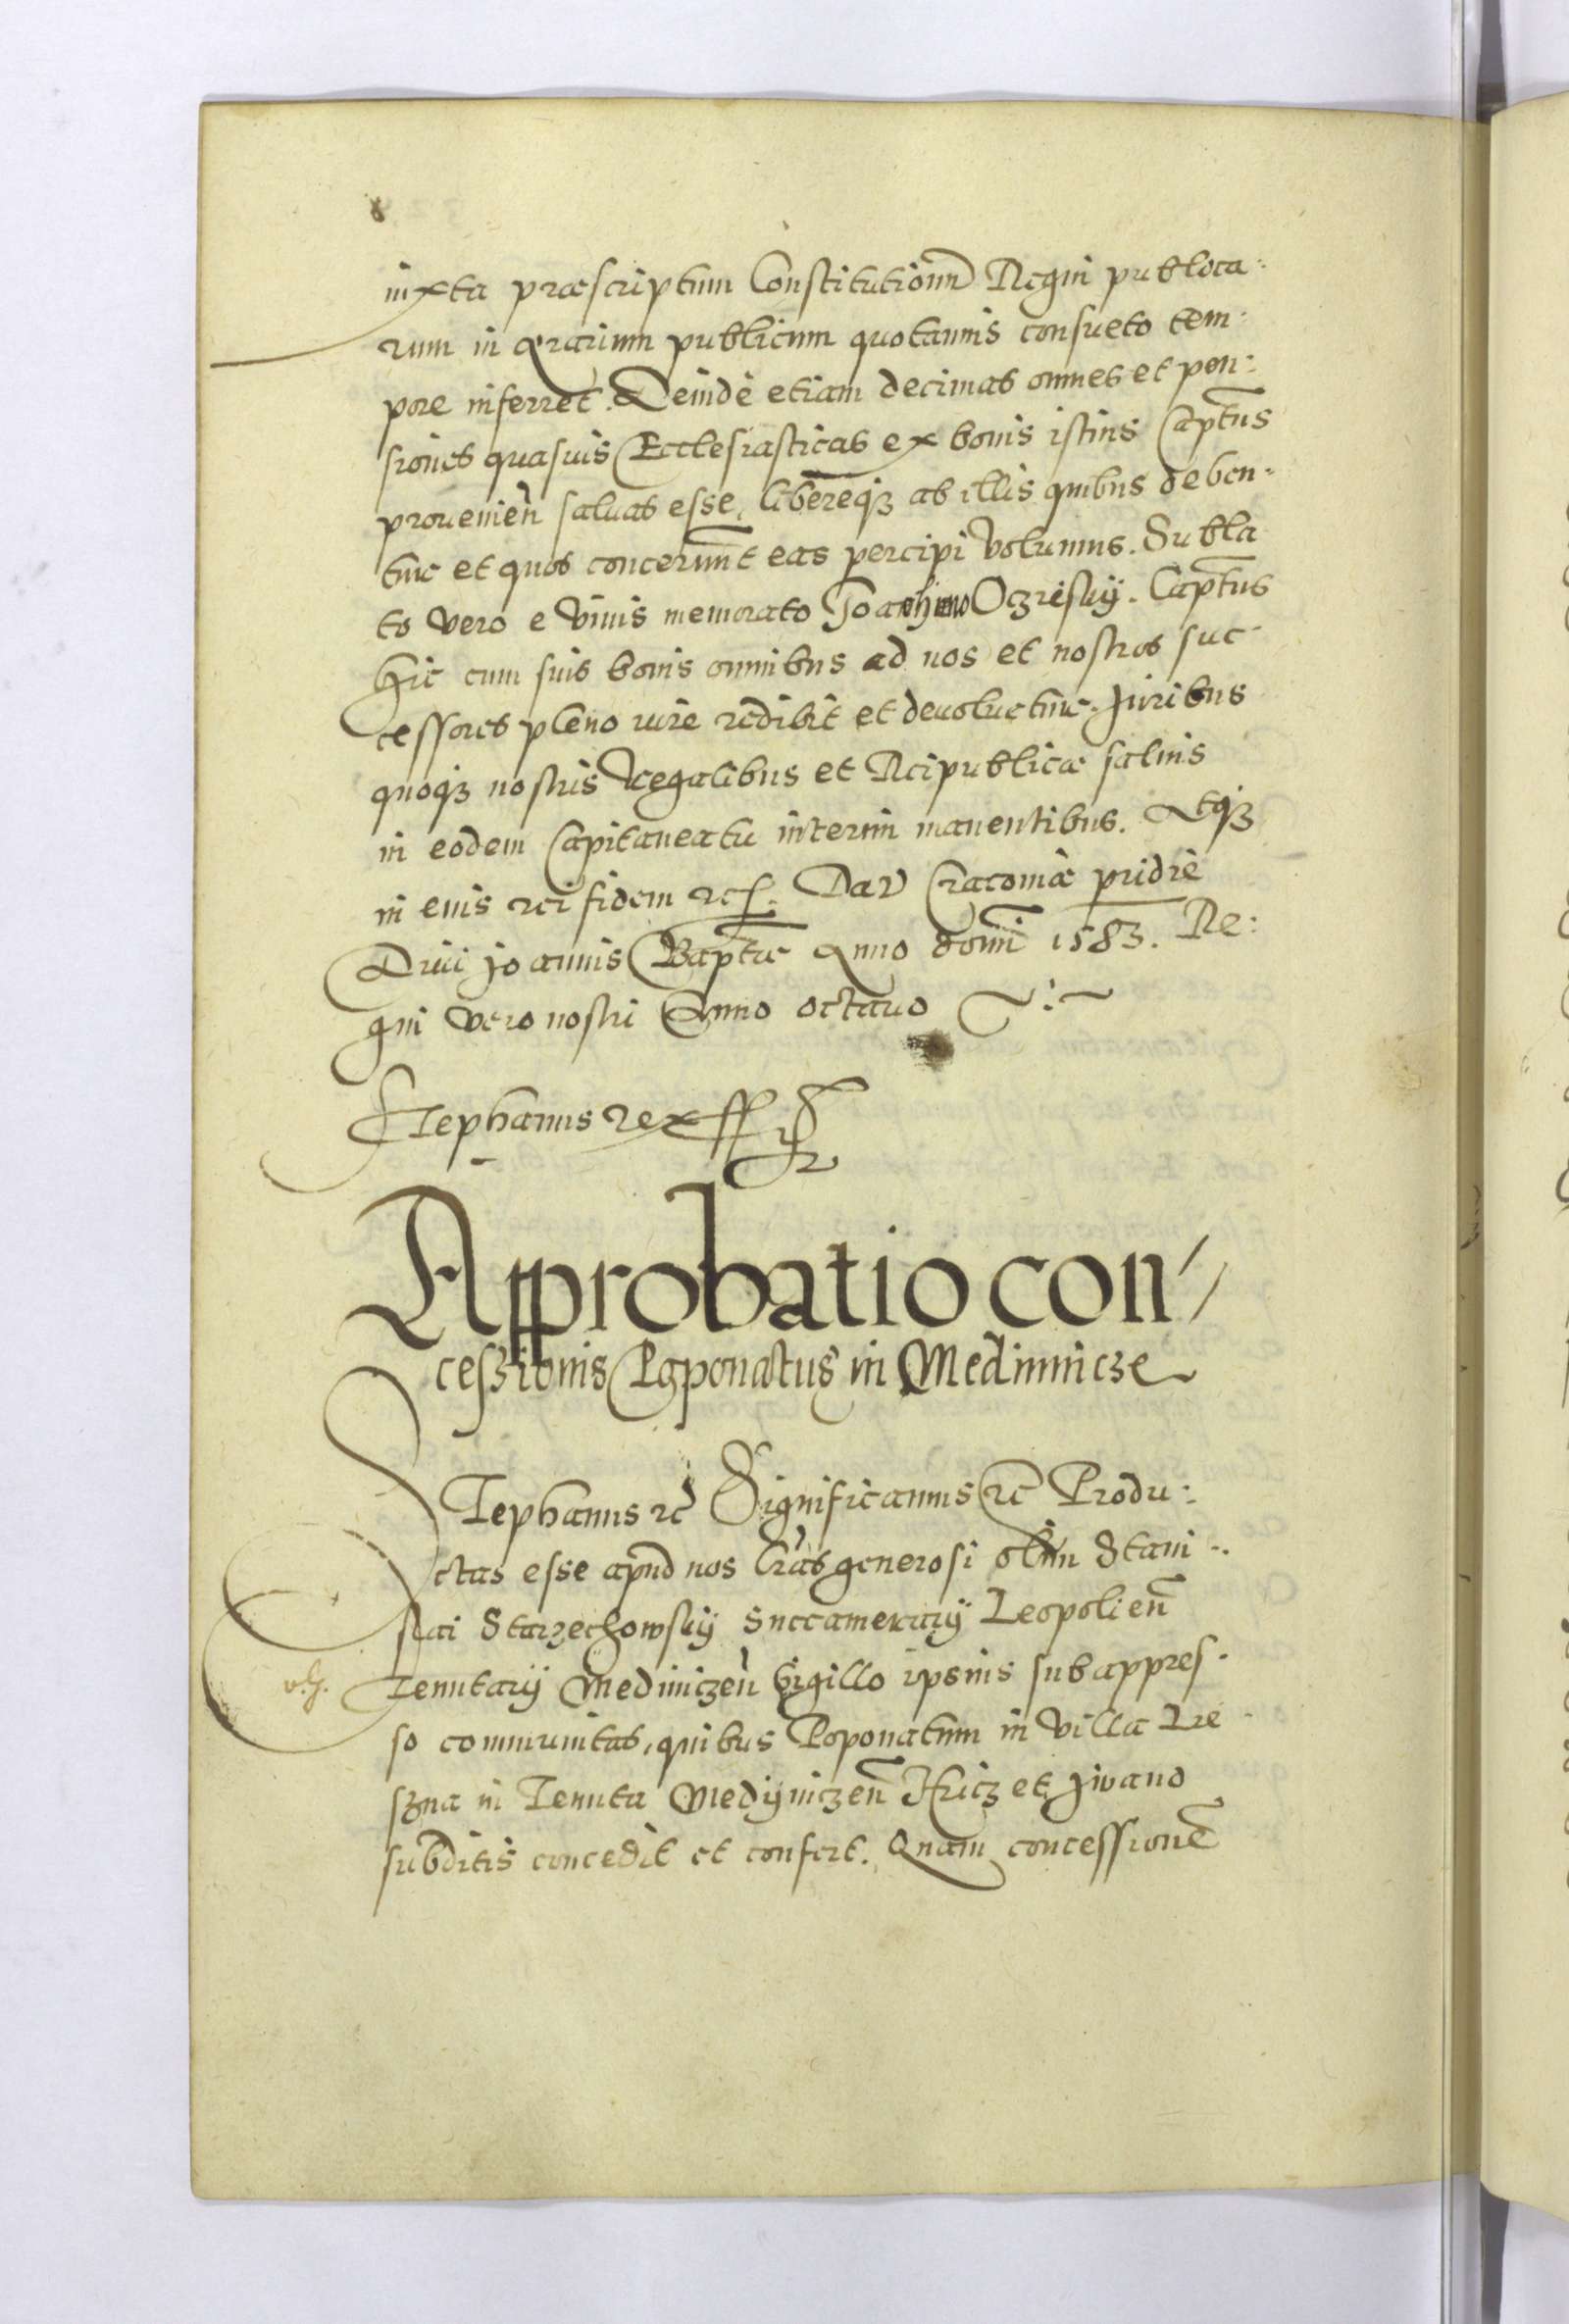 iuxta præscriptum Constitutionũ Regni publica:
rum in Ærarium publicum quotannis consueto tem:
pore inferret. Deinde etiam decimas omnes et pen:
siones quasuis Ecclesiasticas ex bonis istius Captus
prouenien̄ saluas esse, libereqʒ ab illis quibus deben:
tur et quos concerunt eas percipi volumus. Subla
to vero e viuis memorato Joachimo Oczieskÿ. Captus
hic cum suis bonis omnibus ad nos et nostros suc
cessores pleno iure redibit et deuoluetur. Juribus
quoqʒ nostris Regalibus et Reipublicæ saluis
in eodem Capitaneatu interim manentibus. Atqʒ
in eius rei fidem etc. Dat Cracouiæ pridie
Diui Joannis Baptæ Anno domi 1583. Re:
gni vero nostri Anno octauo
Stephanus rex ss
Approbatio con
cesszionis Poponatus in Medinnicze
Stephanus etc Significamus etc Produ:
ctas esse apud nos lr̄as generosi olim Stani:
slai Starzechowskÿ Succamerarÿ Leopolien̄
Tenutarÿ Mediniczen̄ Sigillo ipsius subappres:
so communitas, quibus Poponatum in villa Lre
szna in Tenuta Medÿniczen̄ Hricz et Jwano
subditis concedit et confert. Quam concessionē